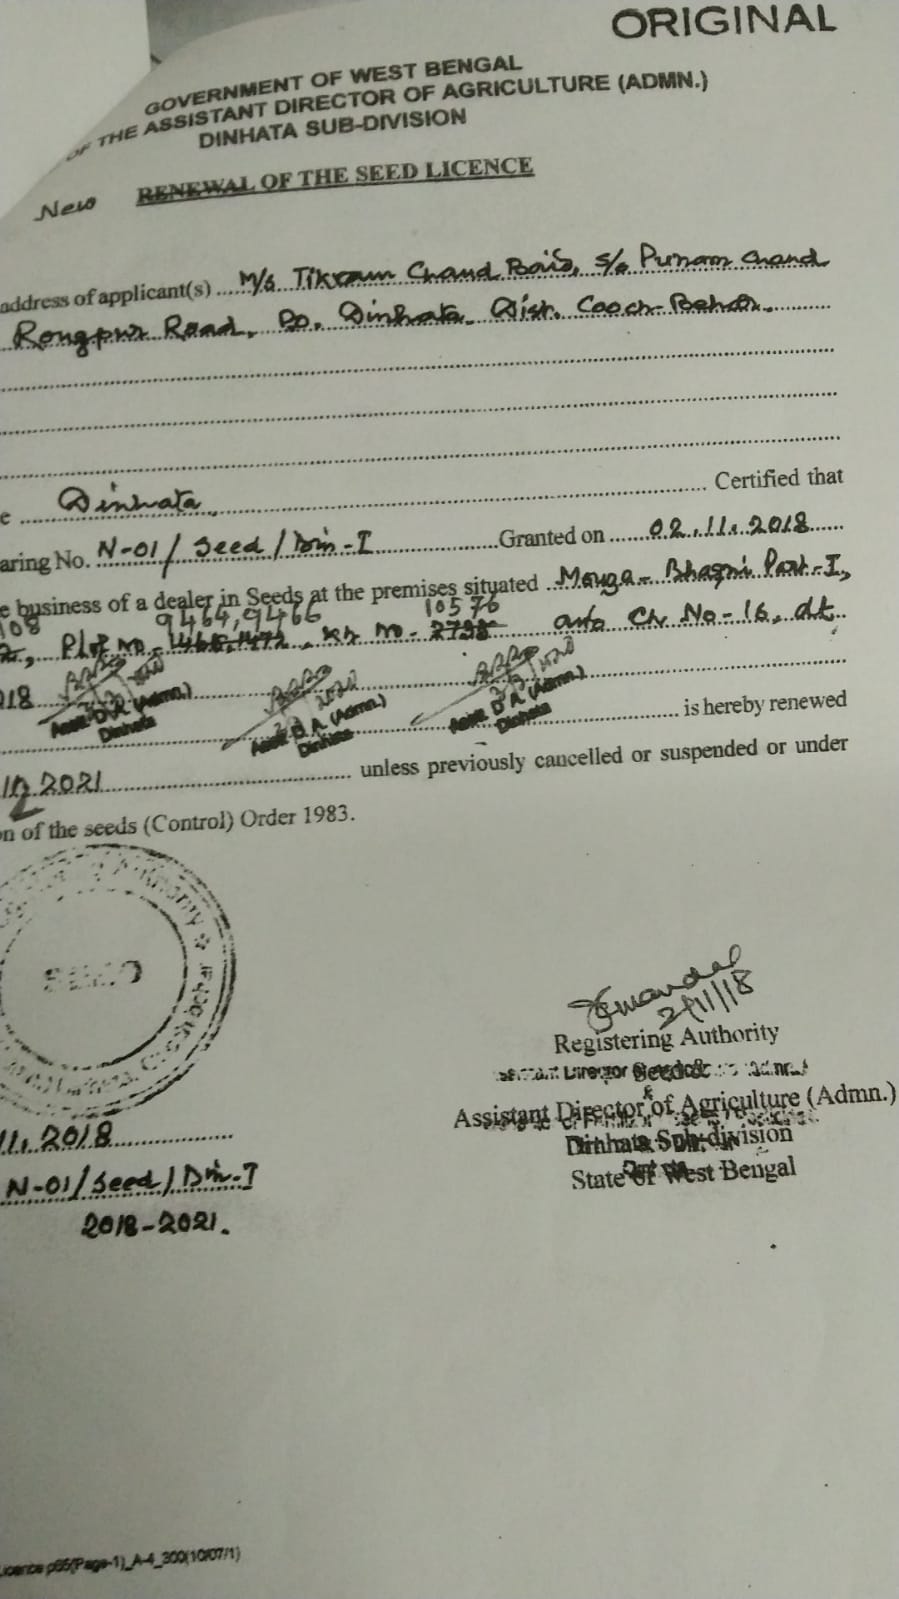 ORIGINAL
GOVERNMENT OF WEST BENGAL
OF THE ASSISTANT DIRECTOR OF AGRICULTURE (ADMN.)
DINHATA SUB-DIVISION
New RENEWAL OF THE SEED LICENCE
address of applicant(s) M/s Tikram Chand Baid, S/o Punam Chand
Rongpur Road, PO. Dinhata. Dist. Cooch-Behar.
e Dinhata Certified that
aring No. N-01/Seed/Din-I Granted on 02.11.2018
e business of a dealer in Seeds at the premises situated Mouga-Bhagni Part-I,
108 9464,9466 10576
Plot no no- 2798 auto Ch No-16, dt.
018
Asstt. D.A. (Admn.) Asstt. D.A. (Admn.) Asstt. D.A. (Admn.)
Dinhata Dinhata Dinhata
is hereby renewed
2021 unless previously cancelled or suspended or under
on of the seeds (Control) Order 1983.
2/11/18
Registering Authority
Assistant Director of Agriculture (Admn.)
Dinhata Sub-division
State of West Bengal
11.2018
N-01/Seed/Din-I
2018-2021.
Licence p65(Page-1)_A-4_300(10/07/1)